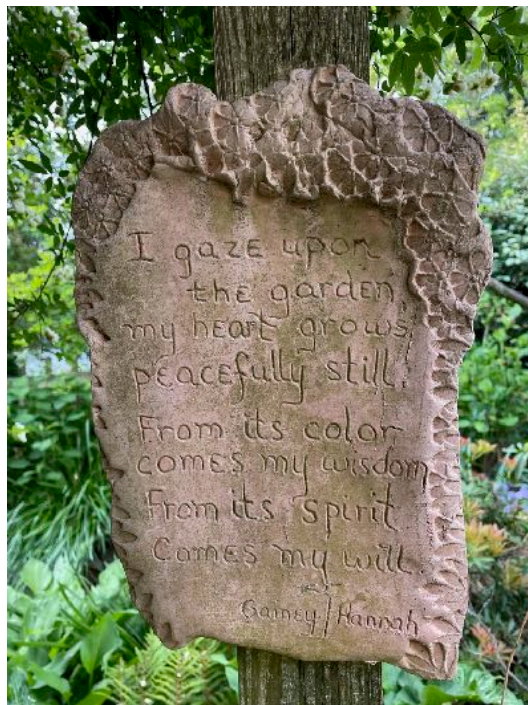 I gaze upon
the garden,
my heart grows
peacefully still.
From its color
comes my wisdom
From its spirit
Comes my will.
Gamey/Hannah